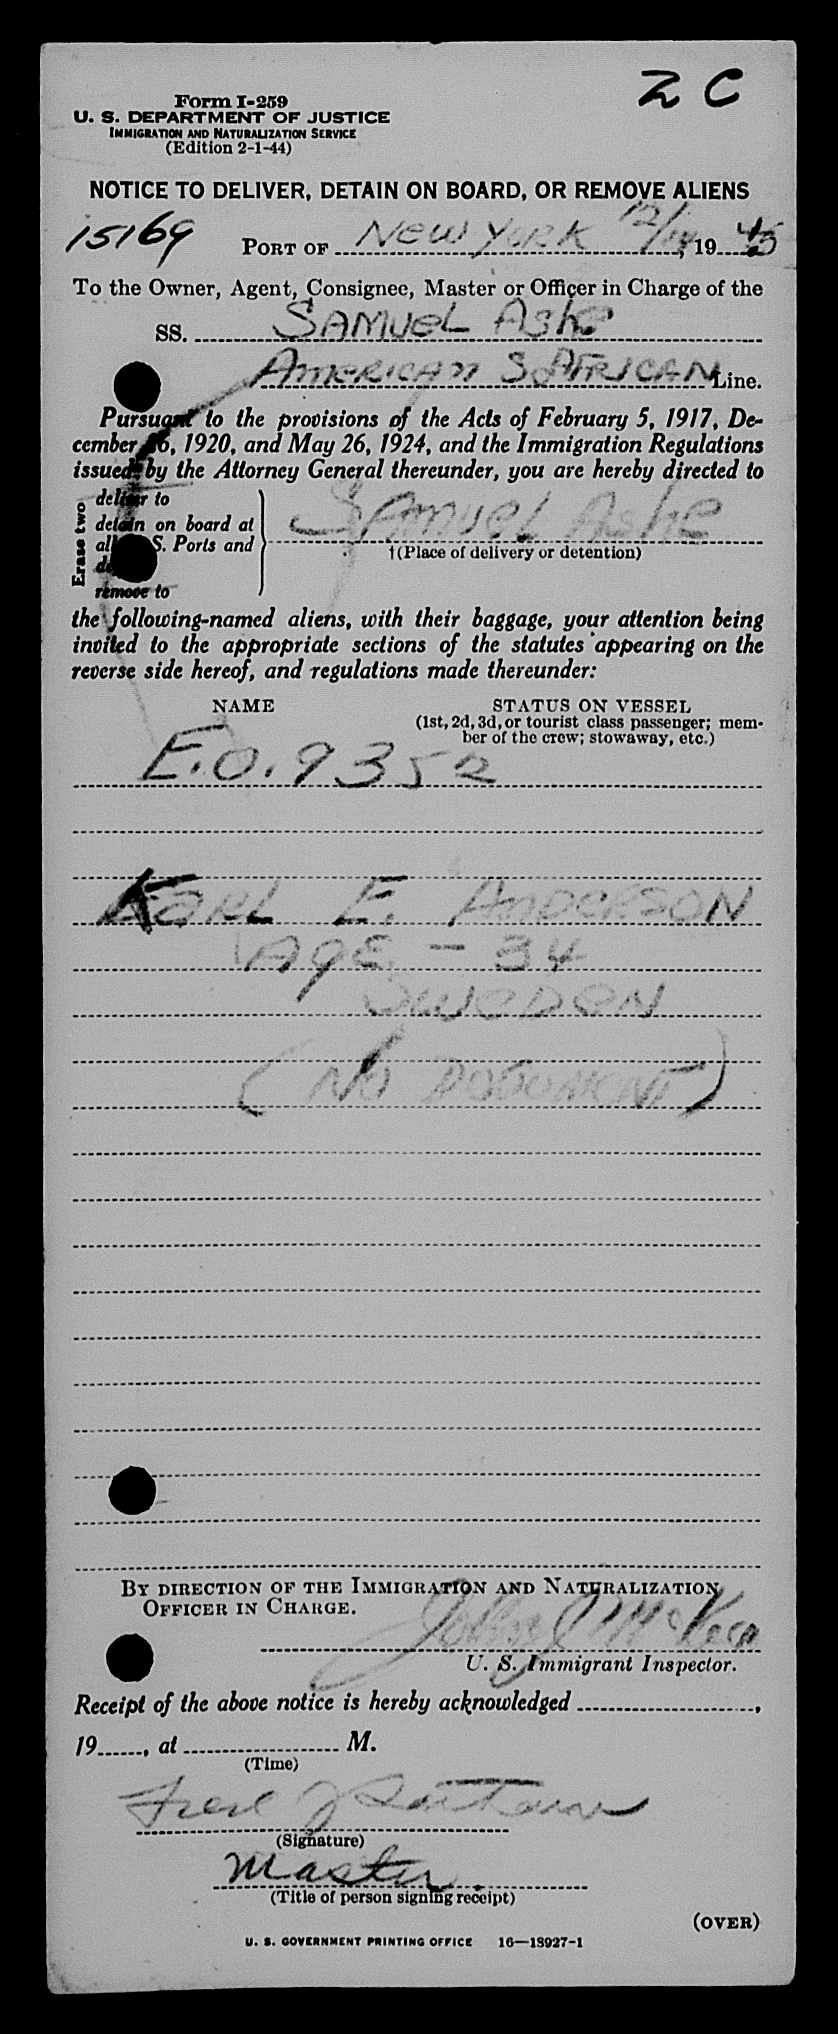 2 C
Form I-259
U. S. DEPARTMENT OF JUSTICE
IMMIGRATION AND NATURALIZATION SERVICE
(Edition 2-1-44)
NOTICE TO DELIVER, DETAIN ON BOARD, OR REMOVE ALIENS
15169 PORT OF New York 12/14, 1945
To the Owner, Agent, Consignee, Master or Officer in Charge of the
SS. SAMUEL Ashe
AMERICAN S AFRICAN Line.
Pursuant to the provisions of the Acts of February 5, 1917, De-
cember 26, 1920, and May 26, 1924, and the Immigration Regulations
issued by the Attorney General thereunder, you are hereby directed to
Erase two
deliver to
detain on board at
all U. S. Ports and
remove to
SAMUEL Ashe
†(Place of delivery or detention)
the following-named aliens, with their baggage, your attention being
invited to the appropriate sections of the statutes appearing on the
reverse side hereof, and regulations made thereunder:
NAME STATUS ON VESSEL
(1st, 2d, 3d, or tourist class passenger; mem-
ber of the crew; stowaway, etc.)
E.O. 9352
KARL E. ANDERSON
AGE - 34
SWEDEN
(NO DOCUMENT)
BY DIRECTION OF THE IMMIGRATION AND NATURALIZATION
OFFICER IN CHARGE.
John J McKeon
U. S. Immigrant Inspector.
Receipt of the above notice is hereby acknowledged ,
19 , at M.
(Time)
Fred J
(Signature)
Master.
(Title of person signing receipt)
(OVER)
U. S. GOVERNMENT PRINTING OFFICE 16—18927-1